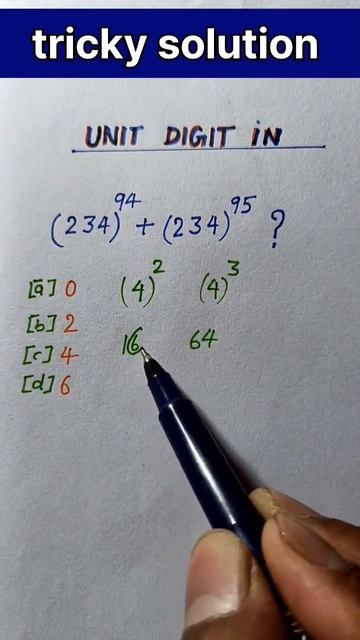 tricky solution
UNIT DIGIT IN
(234)^94 + (234)^95 ?
[a] 0 (4)^2 (4)^3
[b] 2
[c] 4 16 64
[d] 6